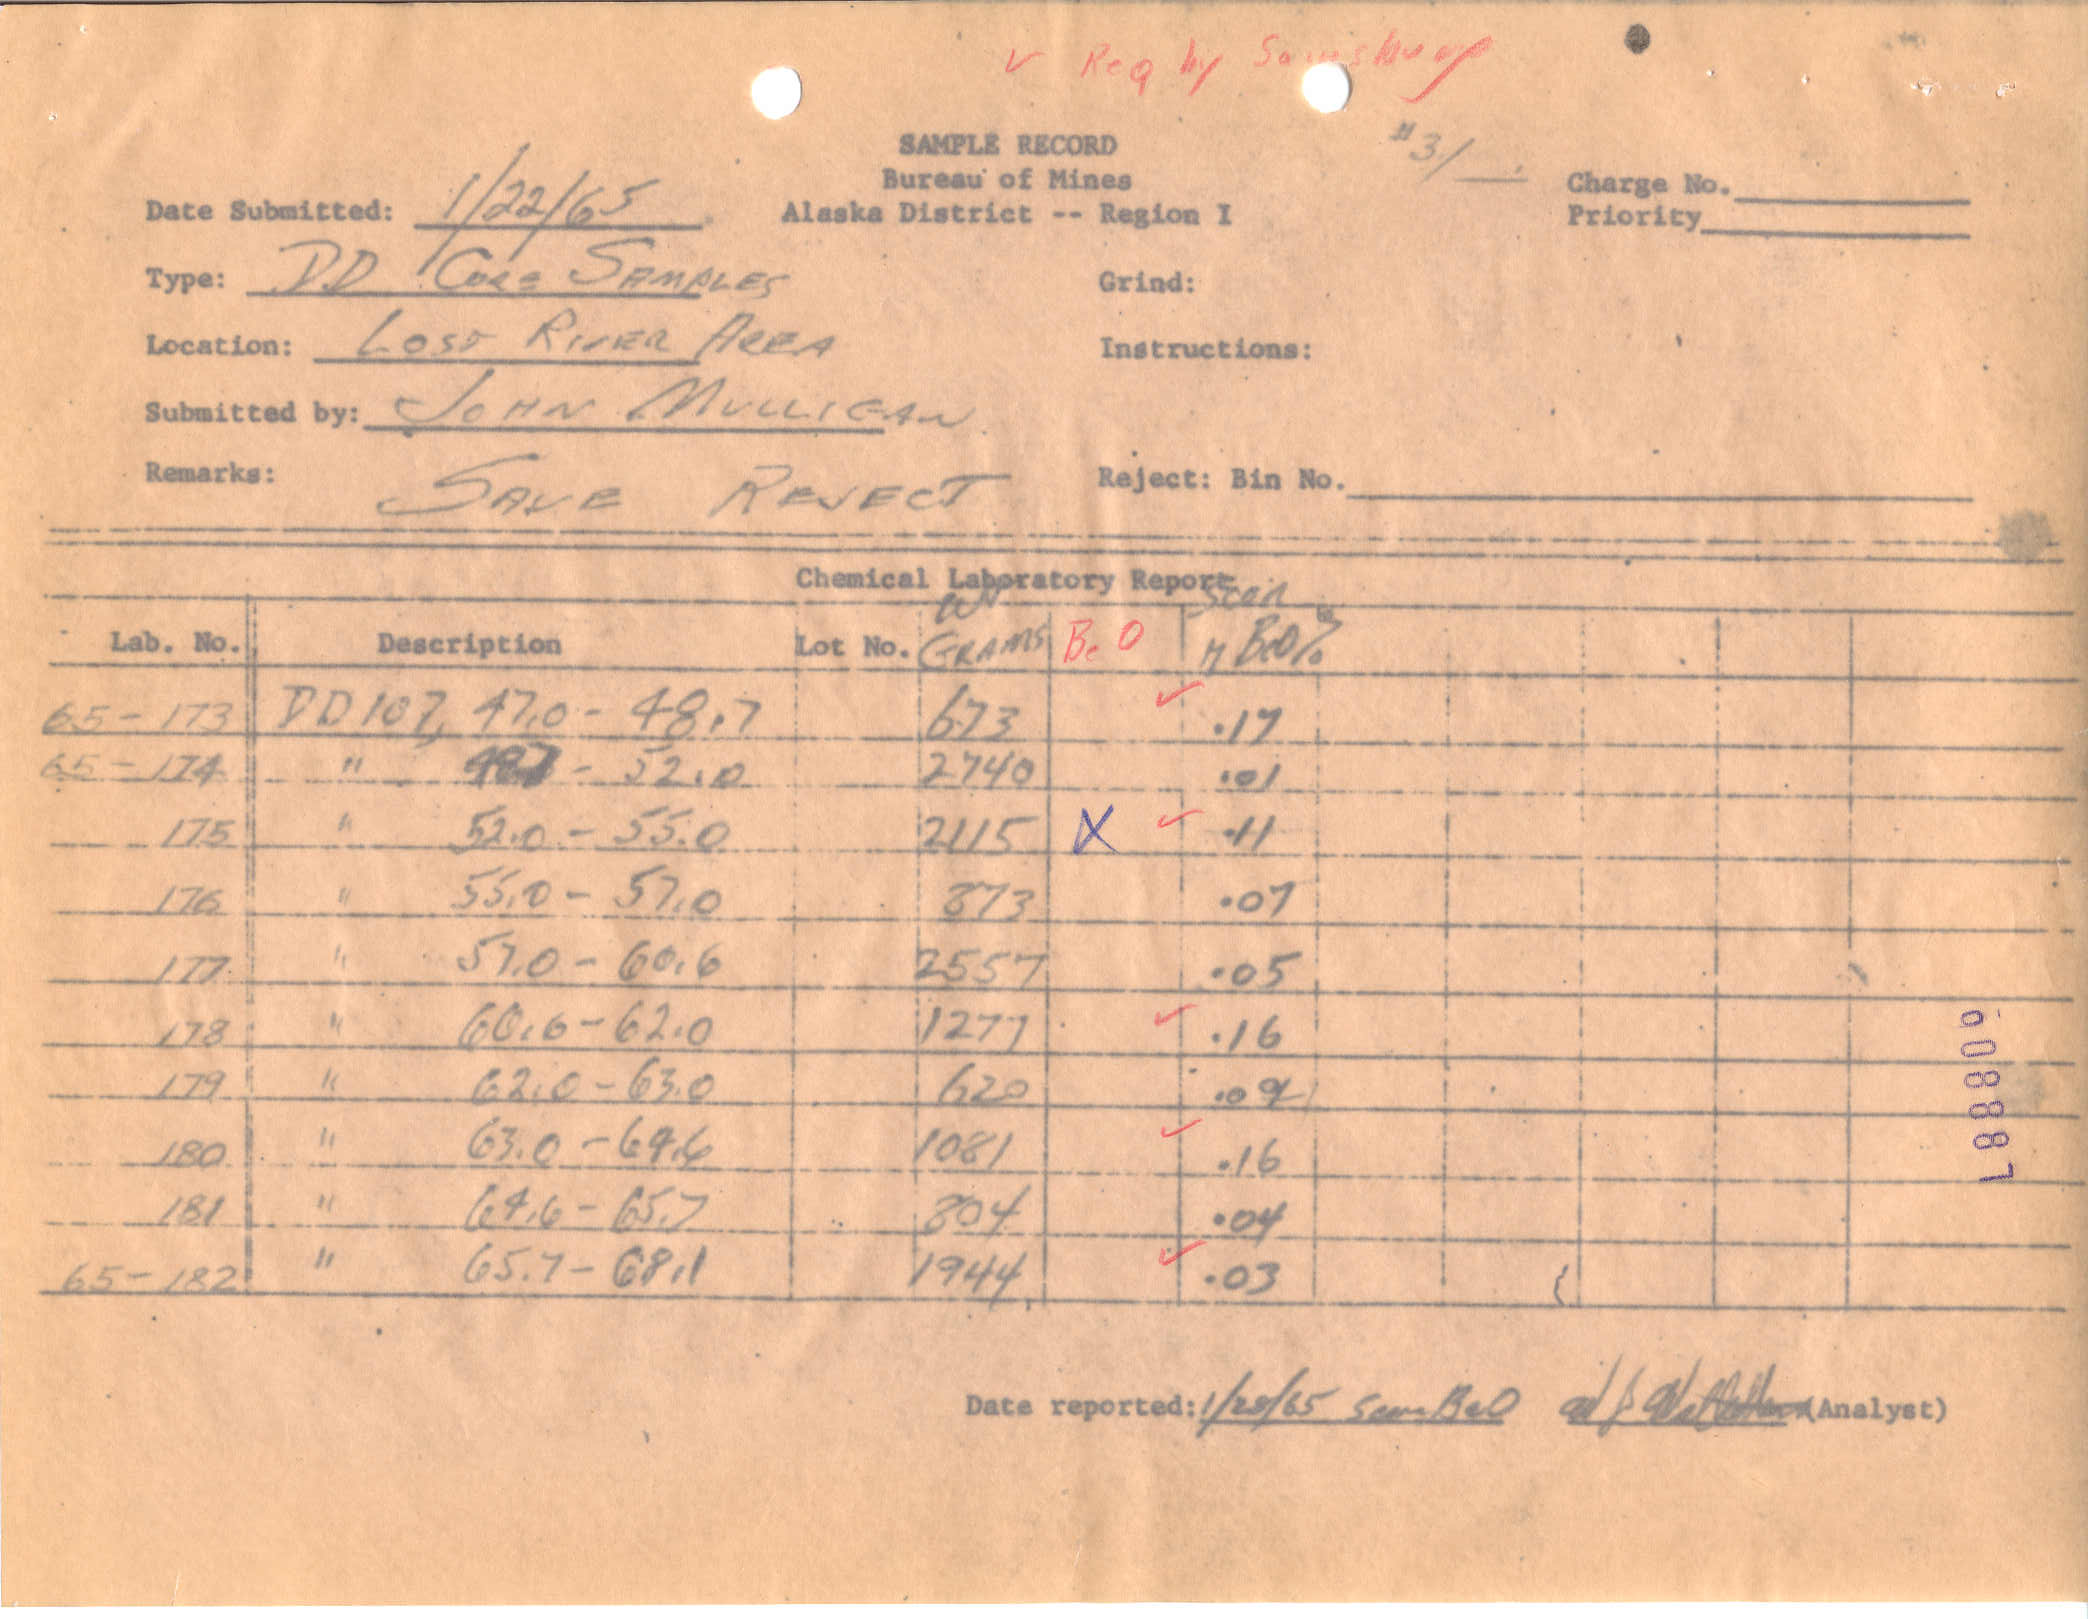 ✓ Req by Sainsbury
#3/
SAMPLE RECORD
Bureau of Mines
Alaska District -- Region I
Charge No.
Priority
Date Submitted: 1/22/65
Type: DD Core Samples
Grind:
Location: Lost River Area
Instructions:
Submitted by: John Mulligan
Remarks: Save Reject
Reject: Bin No.
Chemical Laboratory Report
Lab. No. Description Lot No. Wt Grams BeO Scan BeO %
65-173 DD107, 47.0 - 48.7 673 ✓ .17
65-174 " - 52.0 2740 .01
175 " 52.0 - 55.0 2115 X ✓ .11
176 " 55.0 - 57.0 873 .07
177 " 57.0 - 60.6 2557 .05
178 " 60.6 - 62.0 1277 ✓ .16
179 " 62.0 - 63.0 620 .09
180 " 63.0 - 64.6 1081 ✓ .16
181 " 64.6 - 65.7 804 .04
65-182 " 65.7 - 68.1 1944 ✓ .03
Date reported: 1/28/65 Scan BeO (Analyst)